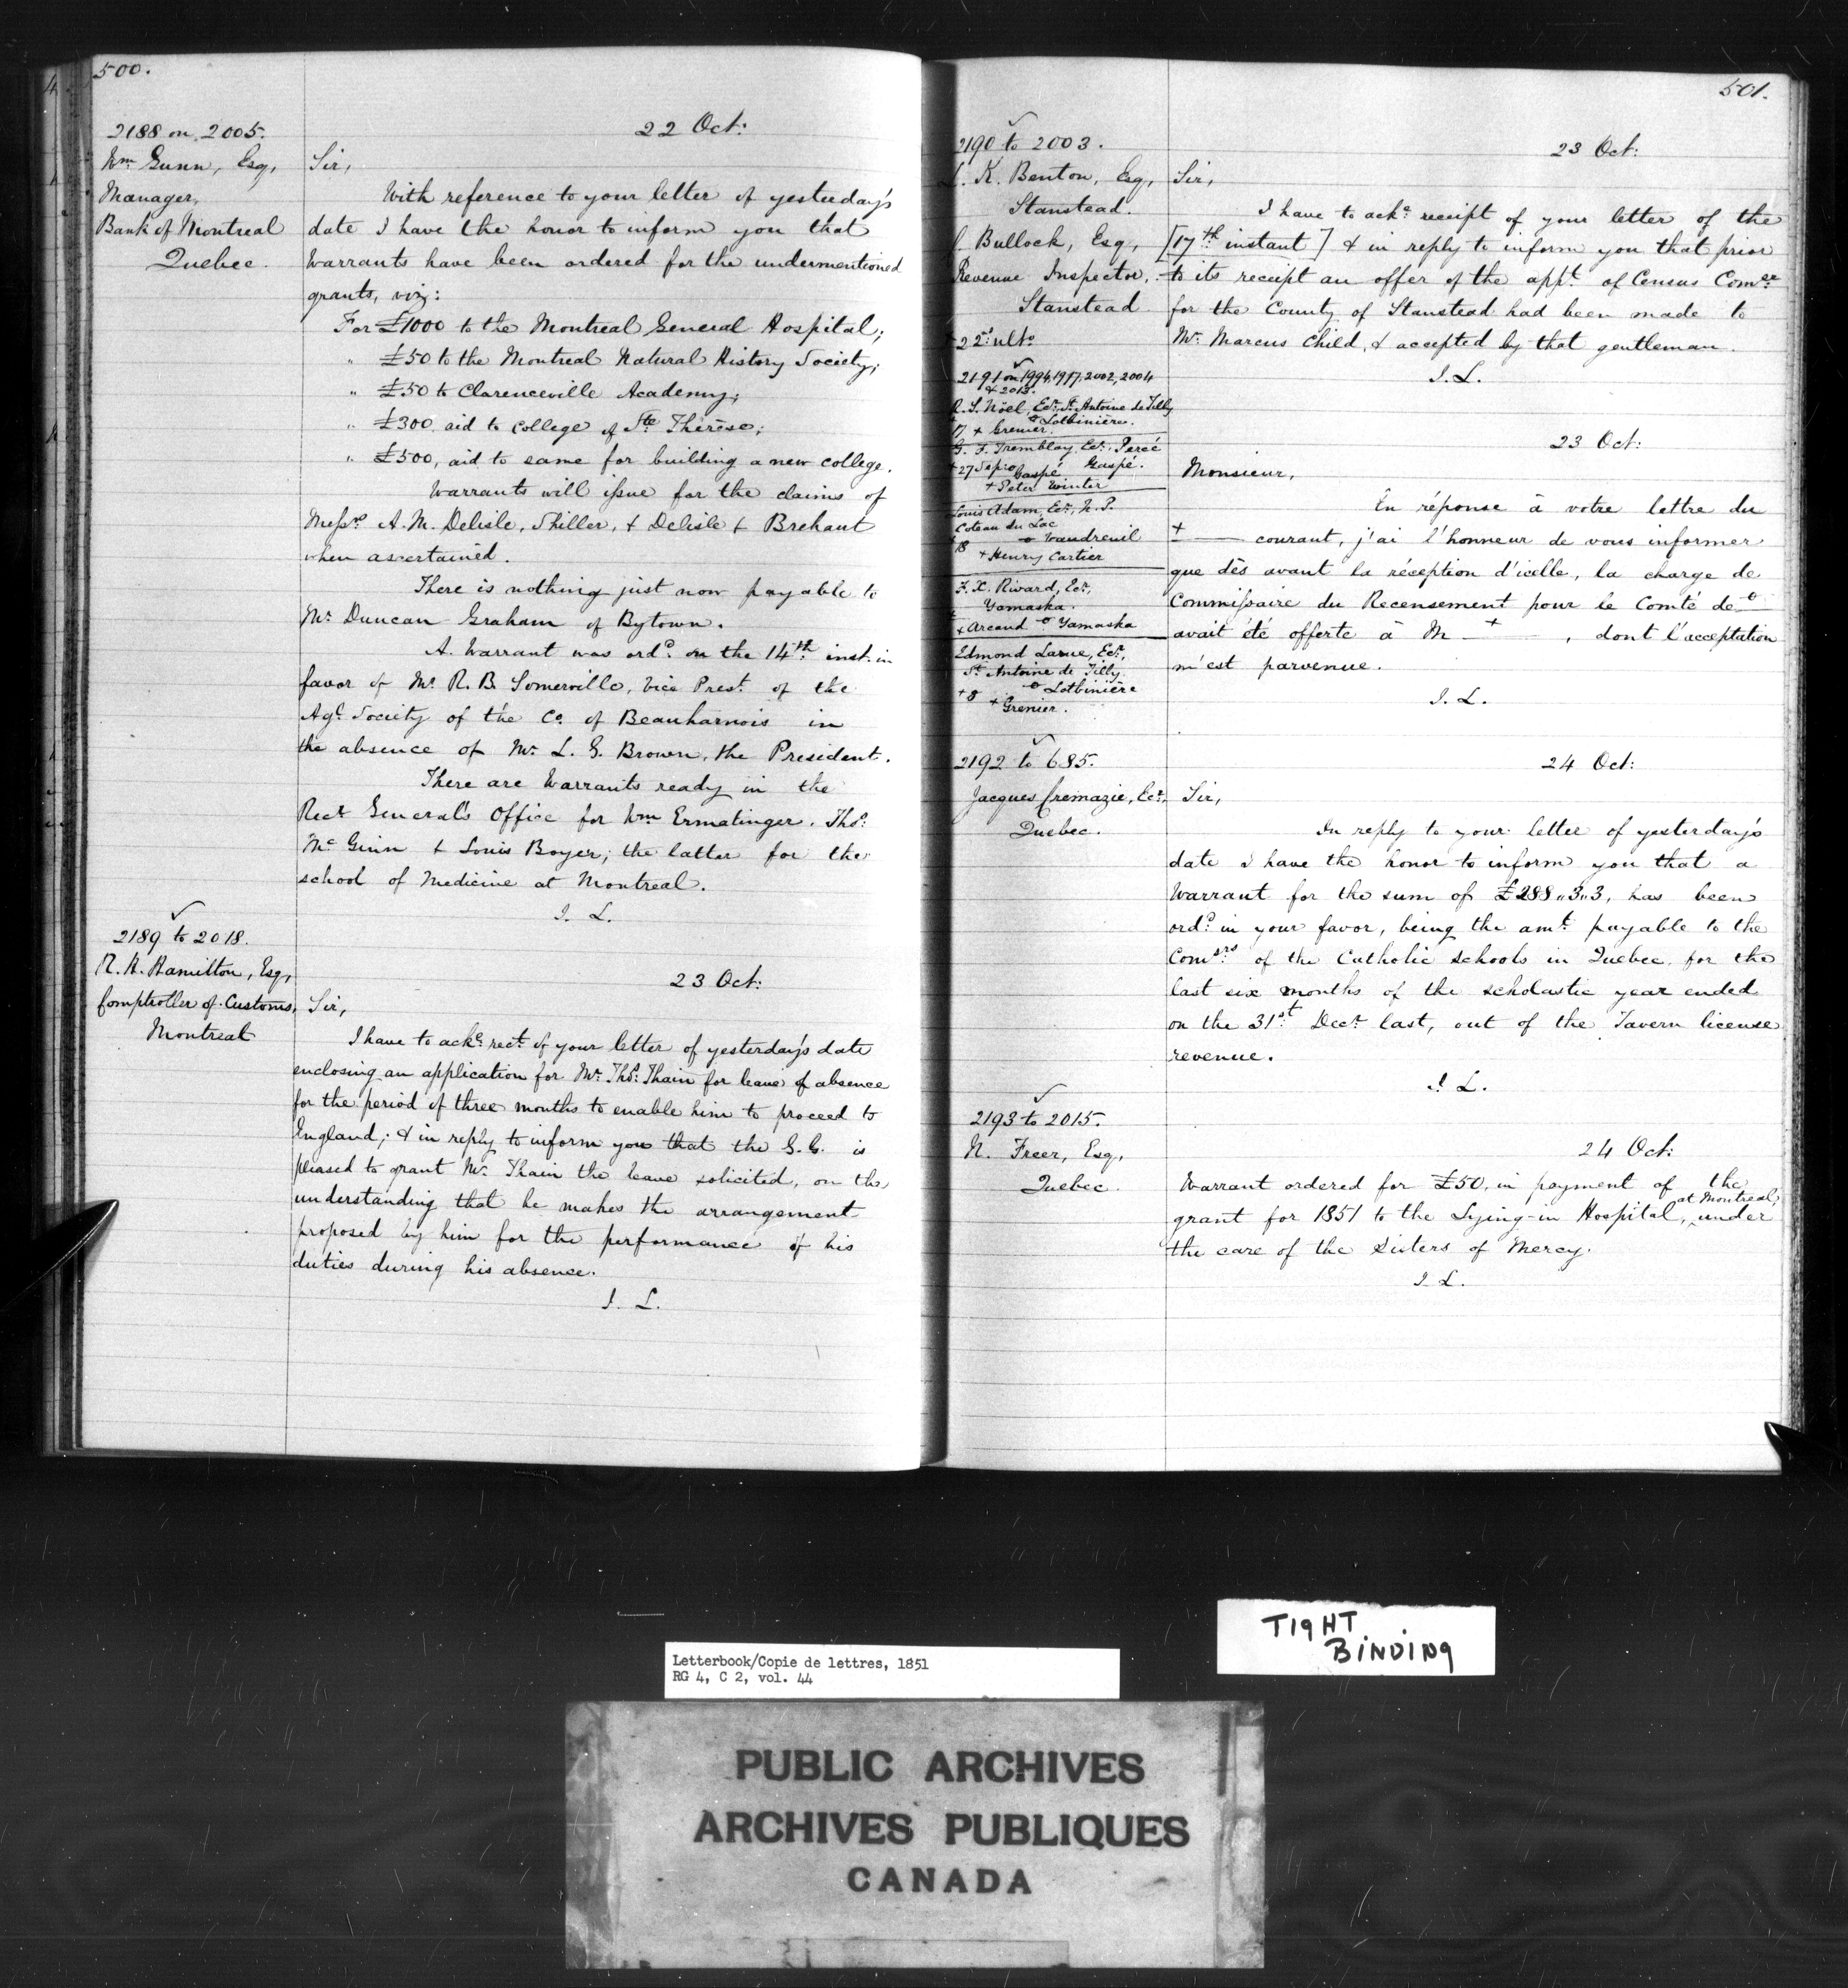 500.
2188 on 2005.
Wm Gunn, Esq,
Manager,
Bank of Montreal
Quebec.
22 Oct:
Sir,
With reference to your letter of yesterday's
date I have the honor to inform you that
Warrants have been ordered for the undermentioned
grants, viz:
For £1000 to the Montreal General Hospital;
" £50 to the Montreal Natural History Society;
" £50 to Clarenceville Academy;
" £300, aid to College of Ste Thérèse;
" £500, aid to same for building a new college.
Warrants will issue for the claims of
Messrs A. M. Delisle, Shiller, & Delisle & Brehaut
when ascertained.
There is nothing just now payable to
Mr Duncan Graham of Bytown.
A Warrant was ordd on the 14th inst. in
favor of Mr R. B. Somerville, Vice Prest of the
Agl Society of the Co. of Beauharnois in
the absence of Mr L. G. Brown, the President.
There are Warrants ready in the
Recr General's Office for Wm Ermatinger, Thos
McGinn & Louis Boyer; the latter for the
school of Medicine at Montreal.
J. L.
2189 to 2018.
R. H. Hamilton, Esq,
Comptroller of Customs,
Montreal
23 Oct:
Sir,
I have to acke rect of your letter of yesterday's date
enclosing an application for Mr Thos Thain for leave of absence
for the period of three months to enable him to proceed to
England; & in reply to inform you that the G. G. is
pleased to grant Mr Thain the leave solicited, on the
understanding that he makes the arrangement
proposed by him for the performance of his
duties during his absence.
J. L.
501.
2190 to 2003.
L. K. Benton, Esq,
Stanstead.
Bullock, Esq,
Revenue Inspector,
Stanstead
22d ulto
23 Oct:
Sir,
I have to acke receipt of your letter of the
[17th instant] & in reply to inform you that prior
to its receipt an offer of the appt of Census Comer
for the County of Stanstead had been made to
Mr Marcus Child, & accepted by that gentleman.
J. L.
2191 on 1994, 1997, 2002, 2004
& 2013.
R. S. Nöel, Ecr, St. Antoine de Tilly
o Lotbinière.
17 + Grenier.
G. F. Tremblay, Ecr, Percé
+ 27 Sep: o Gaspé Gaspé.
+ Peter Winter
Louis Adam, Ecr, N. P.
Coteau du Lac
o Vaudreuil
18
+ Henry Cartier
F. X. Rivard, Ecr,
Yamaska.
+ Arcand o Yamaska
Edmond Larue, Ecr,
St Antoine de Tilly
o Lotbinière
+ 8 + Grenier.
23 Oct:
Monsieur,
En réponse à votre lettre du
± — courant, j'ai l'honneur de vous informer
que dès avant la réception d'icelle, la charge de
Commissaire du Recensement pour le Comté de o
avait été offerte à M — + — , dont l'acceptation
m'est parvenue.
J. L.
2192 to 685.
Jacques Cremazie, Ecr,
Quebec.
24 Oct:
Sir,
In reply to your letter of yesterday's
date I have the honor to inform you that a
Warrant for the sum of £288 "3 "3, has been
ordd in your favor, being the amt payable to the
Comsrs of the Catholic schools in Quebec, for the
last six months of the scholastic year ended
on the 31st Decr last, out of the Tavern license
revenue.
J. L.
2193 to 2015.
N. Freer, Esq,
Quebec.
24 Oct:
Warrant ordered for £50, in payment of the
grant for 1851 to the Lying-in Hospital, at Montreal, under
the care of the Sisters of Mercy.
J. L.
TIGHT
BINDING
Letterbook/Copie de lettres, 1851
RG 4, C 2, vol. 44
PUBLIC ARCHIVES
ARCHIVES PUBLIQUES
CANADA